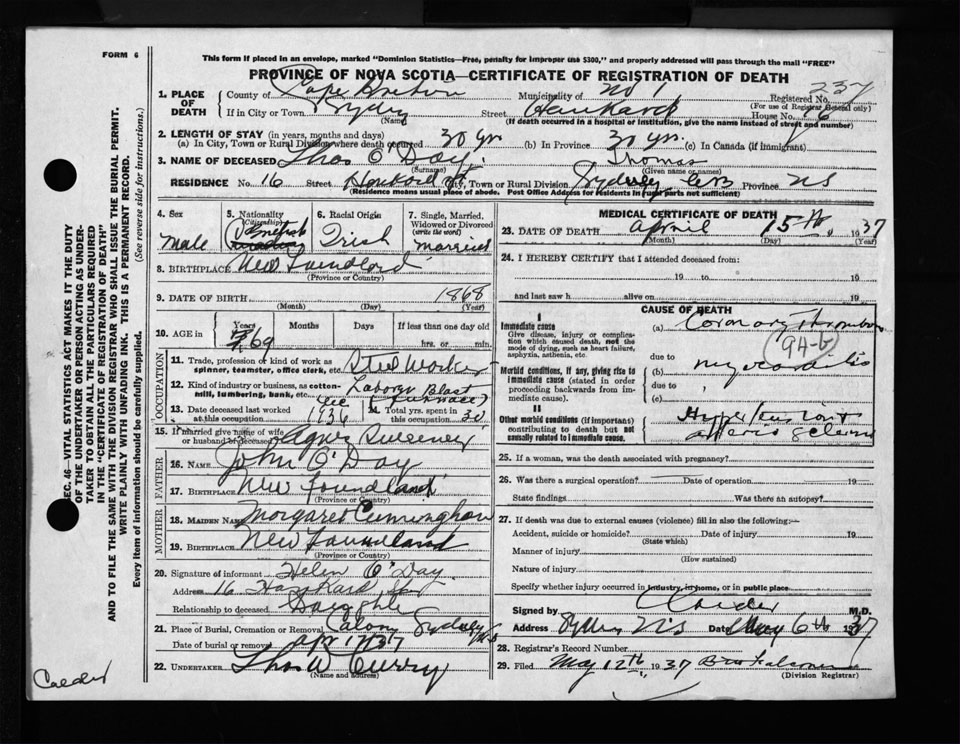 FORM 6
This form if placed in an envelope, marked "Dominion Statistics—Free, penalty for improper use $300," and properly addressed will pass through the mail "FREE"
PROVINCE OF NOVA SCOTIA—CERTIFICATE OF REGISTRATION OF DEATH
1. PLACE OF DEATH County of Cape Breton Municipality of No 1 Registered No. 237
(For use of Registrar General only)
If in City or Town Sydney (Name) Street Hankard House No. 16
(If death occurred in a hospital or institution, give the name instead of street and number)
2. LENGTH OF STAY (in years, months and days)
(a) In City, Town or Rural Division where death occurred 30 yrs (b) In Province 30 yrs. (c) In Canada (if immigrant)
3. NAME OF DECEASED Thos O'Day (Surname) Thomas (Given name or names)
RESIDENCE No. 16 Street Hankard St City, Town or Rural Division Sydney CB Province NS
(Residence means usual place of abode. Post Office Address for residents in rural parts not sufficient)
4. Sex Male
5. Nationality (Citizenship)
6. Racial Origin Irish
7. Single, Married, Widowed or Divorced (write the word) married
8. BIRTHPLACE New Foundland (Province or Country)
9. DATE OF BIRTH (Month) (Day) 1868 (Year)
10. AGE in Years 69 Months Days If less than one day old hrs. or min.
OCCUPATION
11. Trade, profession or kind of work as spinner, teamster, office clerk, etc. Steel Worker
12. Kind of industry or business, as cotton-mill, lumbering, bank, etc. Laborer Blast Furnace
13. Date deceased last worked at this occupation Dec 1936 14. Total yrs. spent in this occupation 30
15. If married give name of wife or husband of deceased Agnes Sweeney
FATHER
16. NAME John O'Day
17. BIRTHPLACE New Foundland (Province or Country)
MOTHER
18. MAIDEN NAME Margaret
19. BIRTHPLACE New Foundland (Province or Country)
20. Signature of informant Helen O'Day
Address 16 Hankard St
Relationship to deceased Daughter
21. Place of Burial, Cremation or Removal Sydney
Date of burial or removal Apr 17/37
22. UNDERTAKER Thos W Curry
(Name and address)
MEDICAL CERTIFICATE OF DEATH
23. DATE OF DEATH April (Month) 15th, (Day) 1937 (Year)
24. I HEREBY CERTIFY that I attended deceased from:
19 to 19
and last saw h alive on 19
CAUSE OF DEATH
I
Immediate cause
Give disease, injury or complication which caused death, not the mode of dying, such as heart failure, asphyxia, asthenia, etc.
(a) Coronary Thrombosis
94-b
due to
Morbid conditions, if any, giving rise to immediate cause (stated in order proceeding backwards from immediate cause).
(b) myocarditis
due to
(c)
II
Other morbid conditions (if important) contributing to death but not causally related to immediate cause.
25. If a woman, was the death associated with pregnancy?
26. Was there a surgical operation? Date of operation 19
State findings Was there an autopsy?
27. If death was due to external causes (violence) fill in also the following:—
Accident, suicide or homicide? (State which) Date of injury 19
Manner of injury (How sustained)
Nature of injury
Specify whether injury occurred in industry, in home, or in public place
Signed by Calder M.D.
Address Sydney NS Date May 6th 1937
28. Registrar's Record Number
29. Filed May 12th, 1937 (Division Registrar)
SEC. 46—VITAL STATISTICS ACT MAKES IT THE DUTY
OF THE UNDERTAKER OR PERSON ACTING AS UNDER-
TAKER TO OBTAIN ALL THE PARTICULARS REQUIRED
IN THE "CERTIFICATE OF REGISTRATION OF DEATH"
AND TO FILE THE SAME WITH THE DIVISION REGISTRAR WHO SHALL ISSUE THE BURIAL PERMIT.
WRITE PLAINLY WITH UNFADING INK. THIS IS A PERMANENT RECORD.
Every item of information should be carefully supplied. (See reverse side for instructions.)
Calder